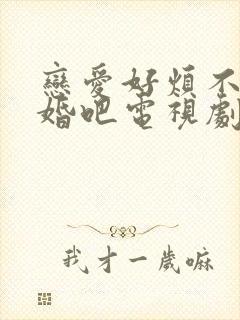 戀愛好煩不
婚吧電視劇
我才一歲嘛